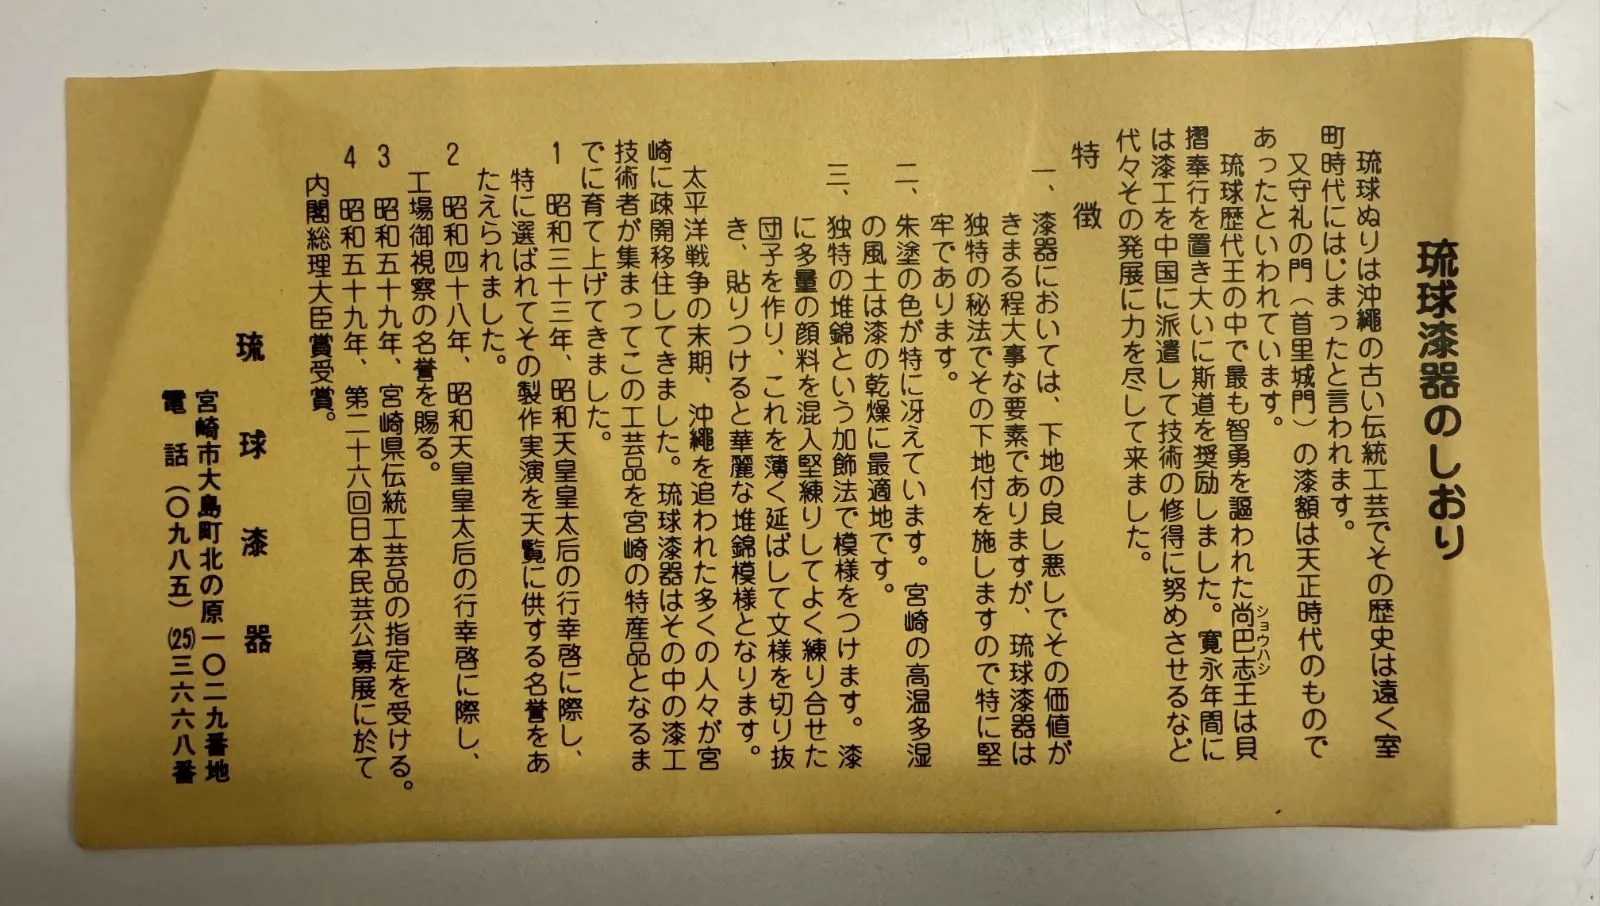 琉球漆器のしおり
琉球ぬりは沖縄の古い伝統工芸でその歴史は遠く室
町時代にはじまったと言われます。
又守礼の門（首里城門）の漆額は天正時代のもので
あったといわれています。
琉球歴代王の中で最も智勇を謳われた尚巴志王は貝
ショウハシ
摺奉行を置き大いに斯道を奨励しました。寛永年間に
は漆工を中国に派遣して技術の修得に努めさせるなど
代々その発展に力を尽して来ました。
特徴
一、漆器においては、下地の良し悪しでその価値が
きまる程大事な要素でありますが、琉球漆器は
独特の秘法でその下地付を施しますので特に堅
牢であります。
二、朱塗の色が特に冴えています。宮崎の高温多湿
の風土は漆の乾燥に最適地です。
三、独特の堆錦という加飾法で模様をつけます。漆
に多量の顔料を混入堅練りしてよく練り合せた
団子を作り、これを薄く延ばして文様を切り抜
き、貼りつけると華麗な堆錦模様となります。
太平洋戦争の末期、沖縄を追われた多くの人々が宮
崎に疎開移住してきました。琉球漆器はその中の漆工
技術者が集まってこの工芸品を宮崎の特産品となるま
でに育て上げてきました。
1 昭和三十三年、昭和天皇皇太后の行幸啓に際し、
特に選ばれてその製作実演を天覧に供する名誉をあ
たえられました。
2 昭和四十八年、昭和天皇皇太后の行幸啓に際し、
工場御視察の名誉を賜る。
3 昭和五十九年、宮崎県伝統工芸品の指定を受ける。
4 昭和五十九年、第二十六回日本民芸公募展に於て
内閣総理大臣賞受賞。
琉球漆器
宮崎市大島町北の原一〇二九番地
電話（〇九八五）(25)三六六八番